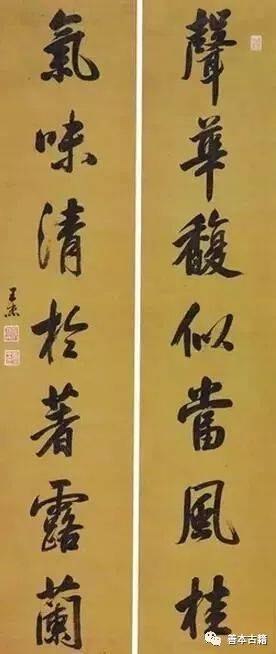 聲華馥似當風桂
氣味清於著露蘭
王杰
善本古籍